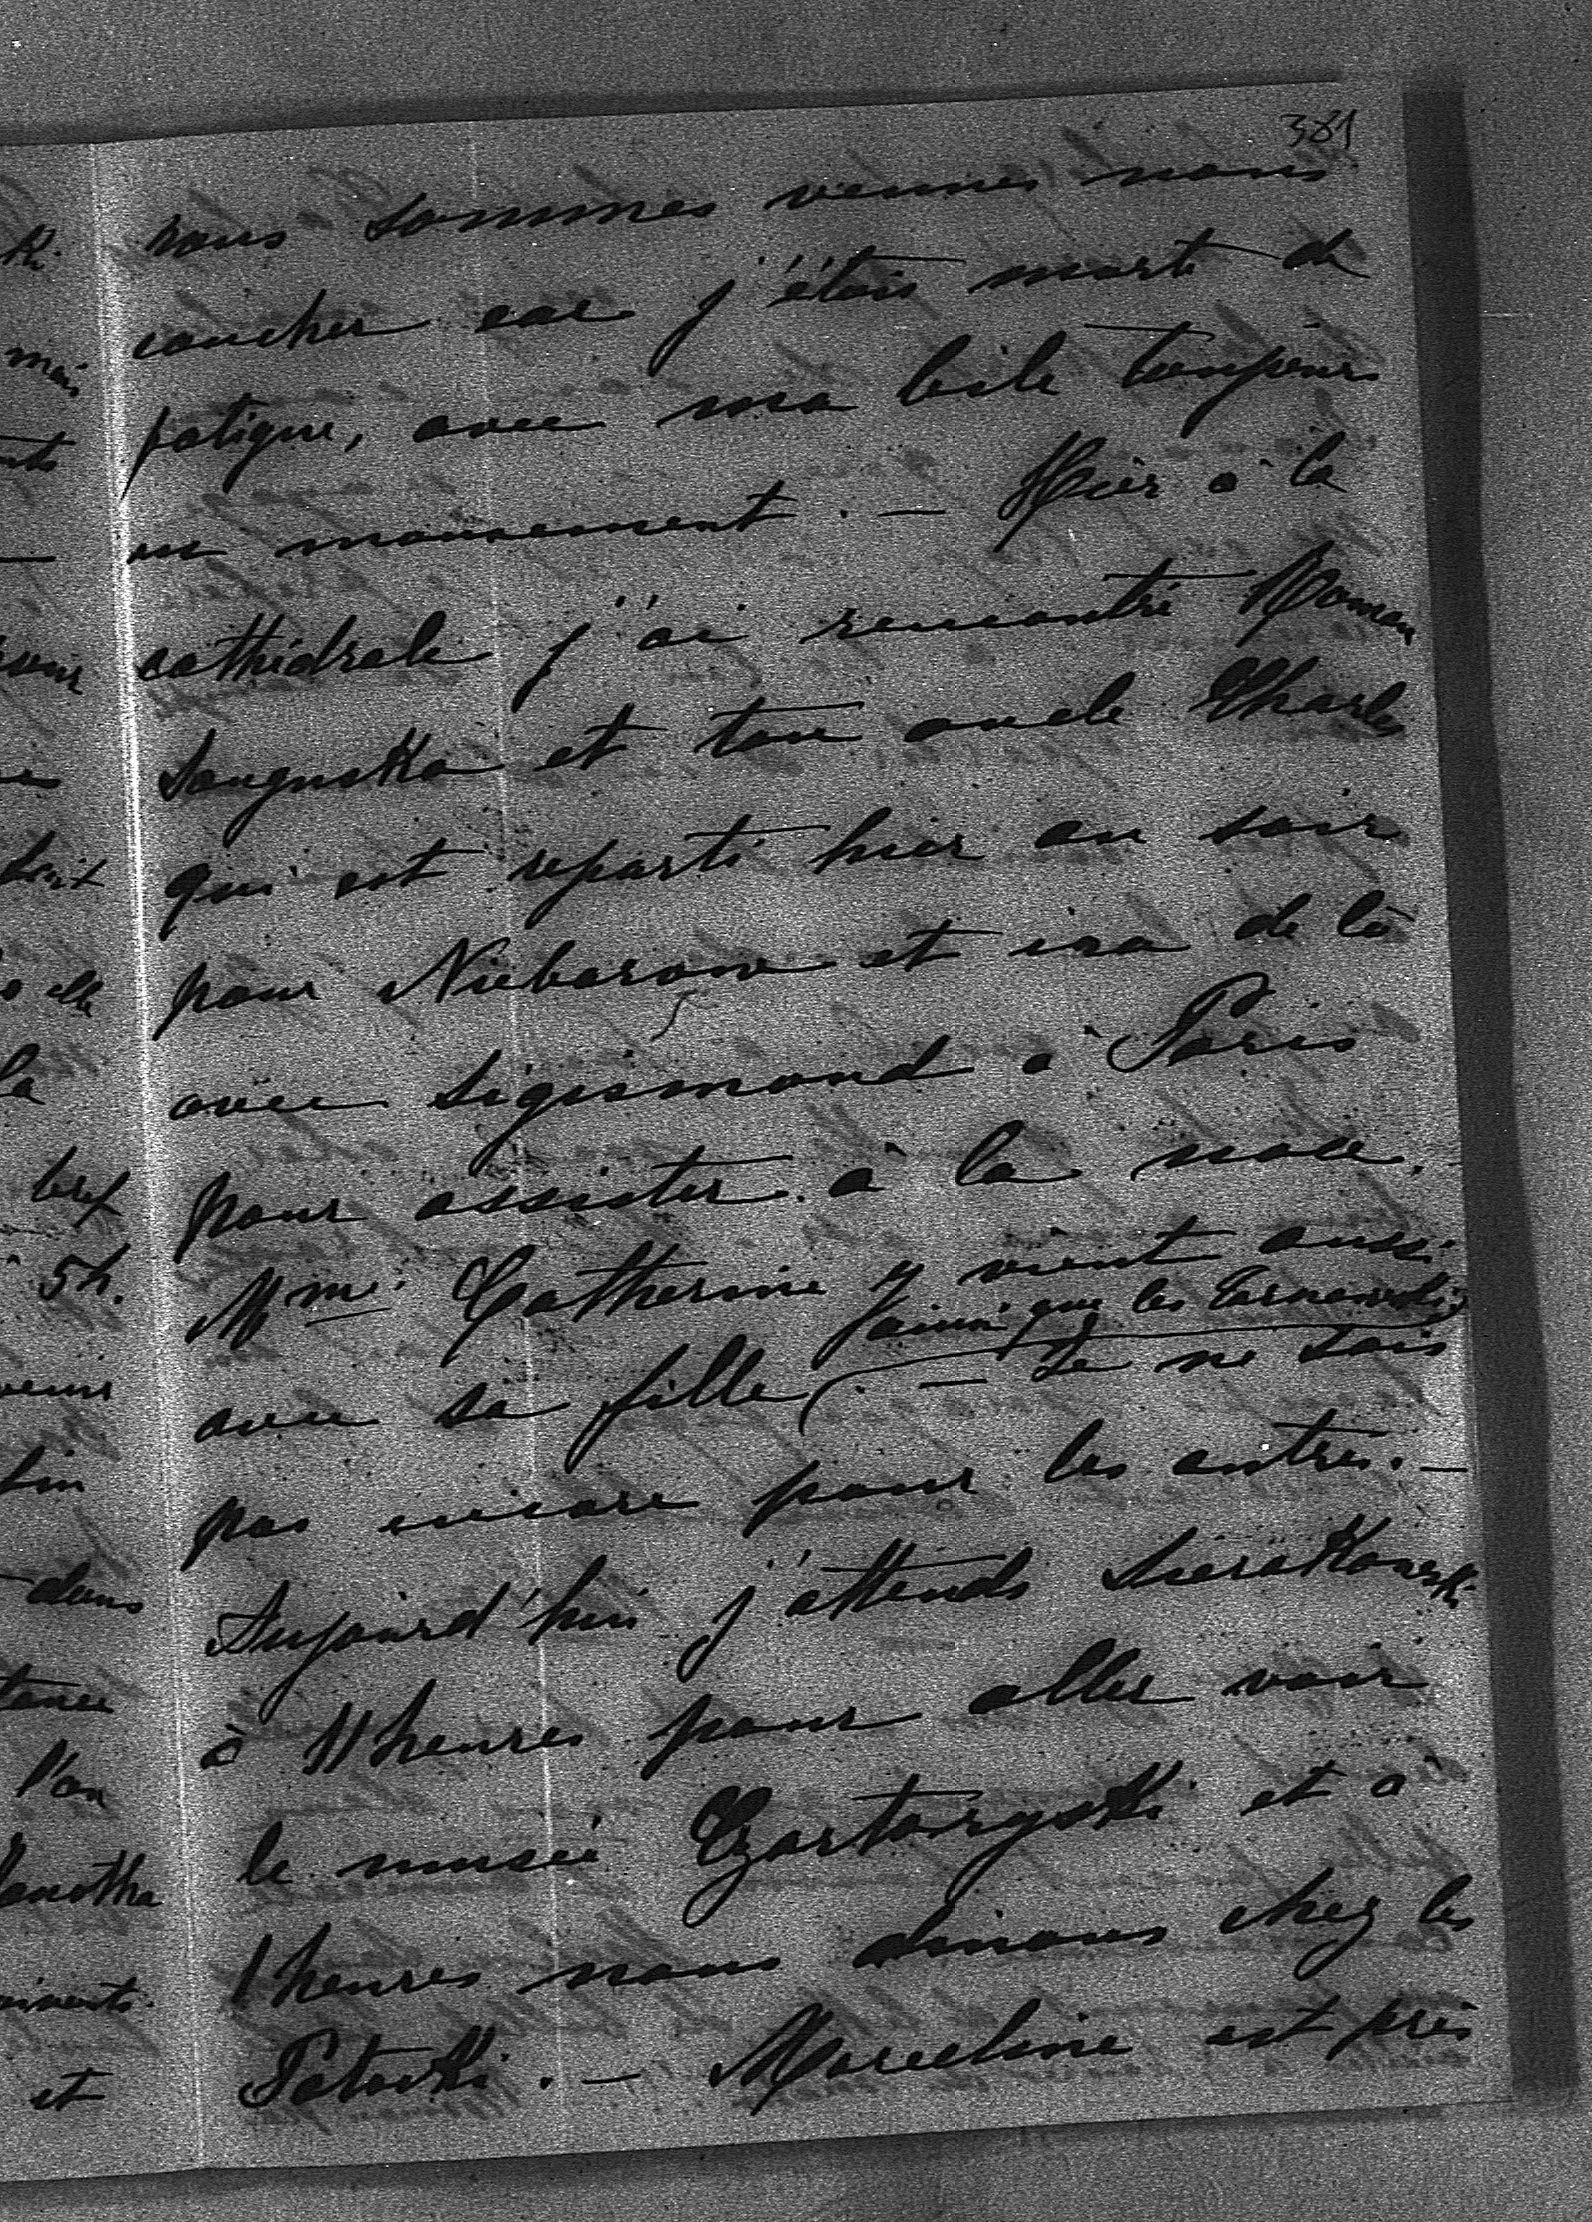 381
ki
nous sommes venues nous
coucher car j'étais morte de
mais
fatigue, avec ma bile toujours
en mouvement. — Hier à la
cathédrale j'ai rencontré Roman
Sanguszko et ton oncle Charles
qui est reparti hier au soir
pour Nieborow et ira de là
elle
avec Sigismond à Paris
la
pour assister à la noce.
bref
Mme Catherine y vient aussi
5h.
ainsi que les Tarnowski
avec sa fille. — Je ne sais
pas encore pour les autres. —
dans
Aujourd'hui j'attends Sierakowski
à 11 heures pour aller voir
l'on
le musée Czartoryski et à
1 heures nous dinons chez les
et
Potocki. — Marceline est près